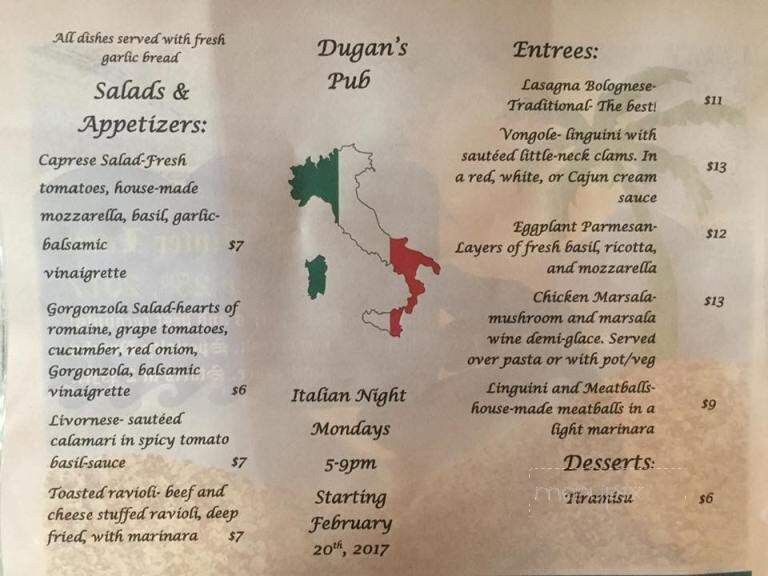 All dishes served with fresh
garlic bread
Salads &
Appetizers:
Caprese Salad-Fresh
tomatoes, house-made
mozzarella, basil, garlic-
balsamic $7
vinaigrette
Gorgonzola Salad-hearts of
romaine, grape tomatoes,
cucumber, red onion,
Gorgonzola, balsamic
vinaigrette $6
Livornese- sautéed
calamari in spicy tomato
basil-sauce $7
Toasted ravioli- beef and
cheese stuffed ravioli, deep
fried, with marinara $7
Dugan's
Pub
Italian Night
Mondays
5-9pm
Starting
February
20th, 2017
Entrees:
Lasagna Bolognese-
Traditional- The best! $11
Vongole- linguini with
sautéed little-neck clams. In
a red, white, or Cajun cream $13
sauce
Eggplant Parmesan-
Layers of fresh basil, ricotta, $12
and mozzarella
Chicken Marsala- $13
mushroom and marsala
wine demi-glace. Served
over pasta or with pot/veg
Linguini and Meatballs-
house-made meatballs in a $9
light marinara
Desserts:
Tiramisu $6